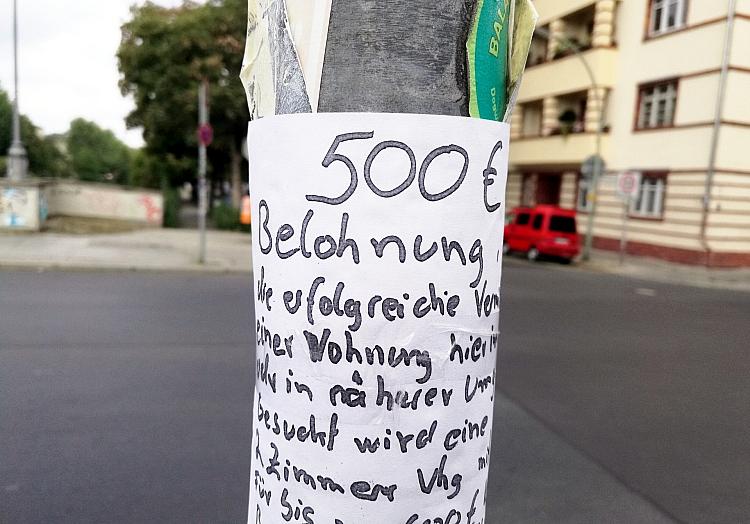 BAL
500 €
Belohnung
die erfolgreiche Verm
einer Wohnung hier in
oder in näherer Umg
Gesucht wird eine
2 Zimmer Whg mi
für bis